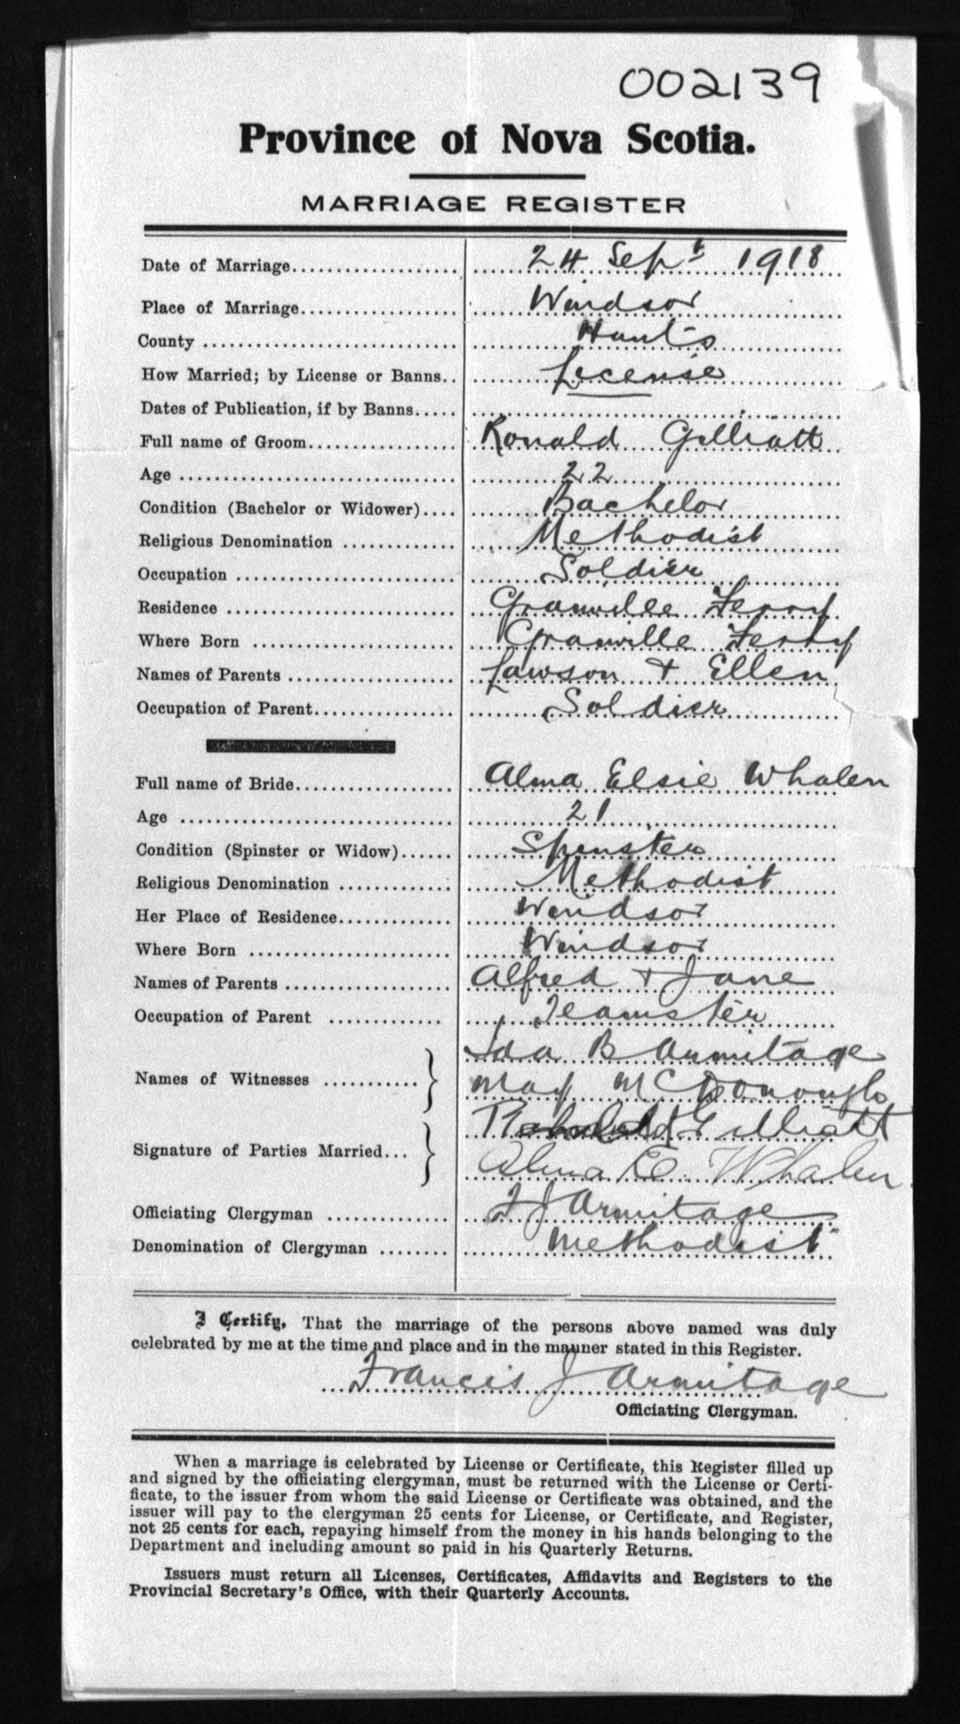 002139
Province of Nova Scotia.
MARRIAGE REGISTER
Date of Marriage.................... 24 Sept 1918
Place of Marriage.................. Windsor
County ............................. Hants
How Married; by License or Banns.. License
Dates of Publication, if by Banns.....
Full name of Groom................. Ronald Gilliatt
Age ................................ 22
Condition (Bachelor or Widower).... Bachelor
Religious Denomination ............. Methodist
Occupation ......................... Soldier
Residence .......................... Granville Ferry
Where Born ....................... Granville Ferry
Names of Parents ................... Lawson + Ellen
Occupation of Parent................ Soldier
Full name of Bride.................. Alma Elsie Whalen
Age ............................... 21
Condition (Spinster or Widow)...... Spinster
Religious Denomination ............. Methodist
Her Place of Residence............. Windsor
Where Born ....................... Windsor
Names of Parents ................... Alfred + Jane
Occupation of Parent ............. Teamster
Ida B Armitage
Names of Witnesses ........... }
May McDonough
Gilliatt
Signature of Parties Married... }
Alma E Whalen
Officiating Clergyman .............. F J Armitage
Denomination of Clergyman ........ Methodist
I Certify, That the marriage of the persons above named was duly
celebrated by me at the time and place and in the manner stated in this Register.
Francis J Armitage
Officiating Clergyman.
When a marriage is celebrated by License or Certificate, this Register filled up
and signed by the officiating clergyman, must be returned with the License or Certi-
ficate, to the issuer from whom the said License or Certificate was obtained, and the
issuer will pay to the clergyman 25 cents for License, or Certificate, and Register,
not 25 cents for each, repaying himself from the money in his hands belonging to the
Department and including amount so paid in his Quarterly Returns.
Issuers must return all Licenses, Certificates, Affidavits and Registers to the
Provincial Secretary's Office, with their Quarterly Accounts.